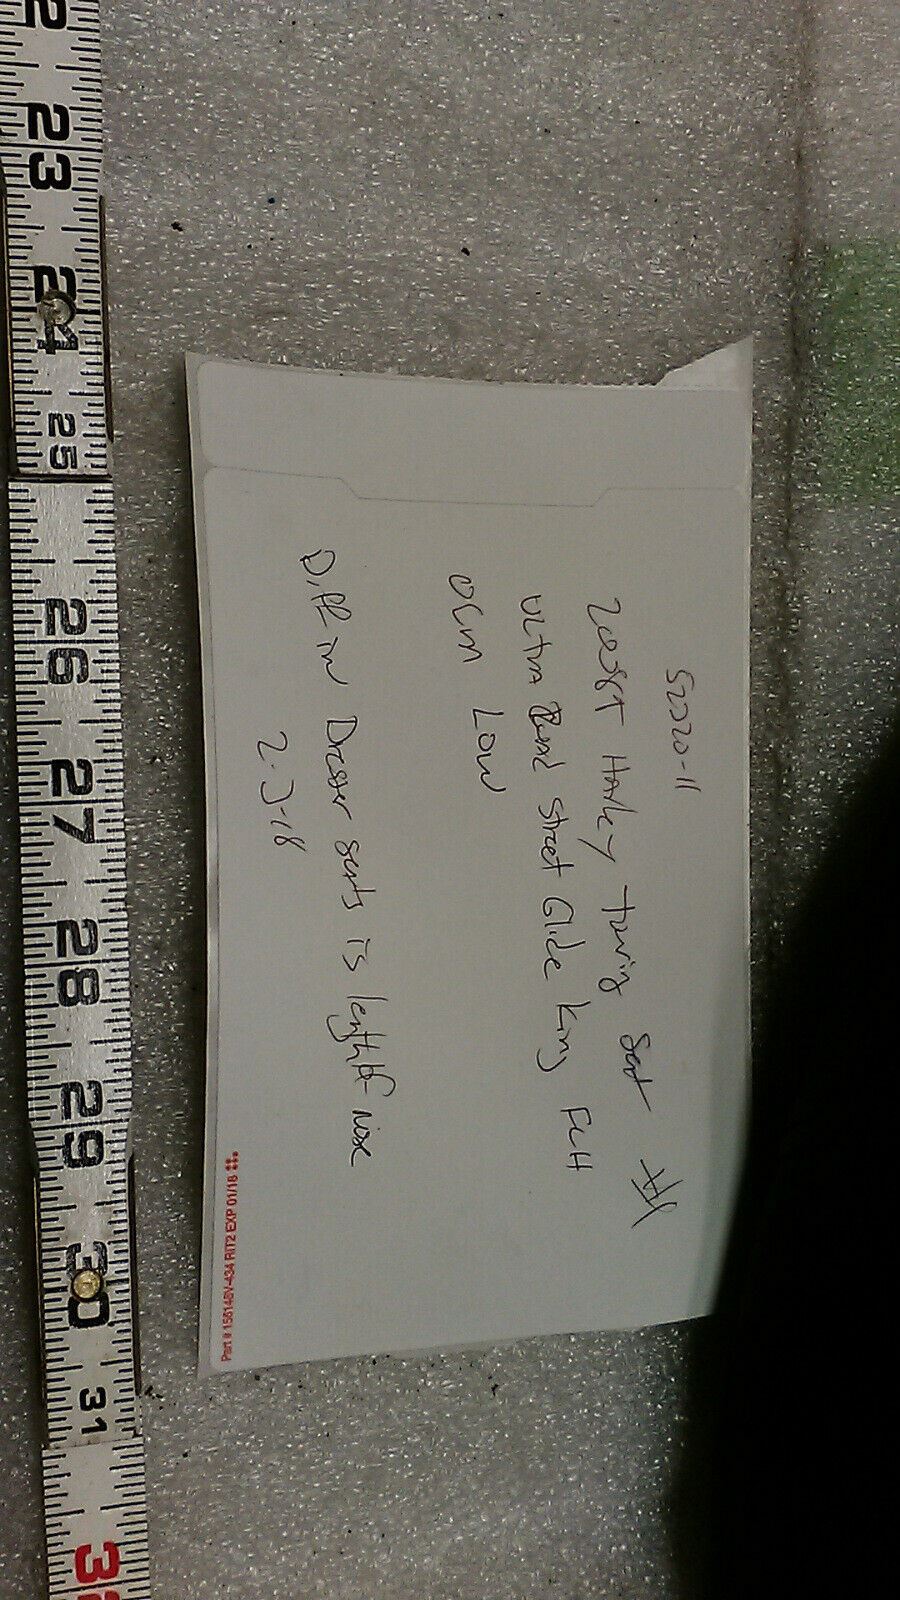 52320-11
2008+ Harley Touring Seat #1
Ultra Road Street Glide King FLH
OEM Low
Diff in Dresser seats is length of nose
2-3-18
Part # 156148V-434 RIT2 EXP 01/18
23
24
25
26
27
28
29
30
31